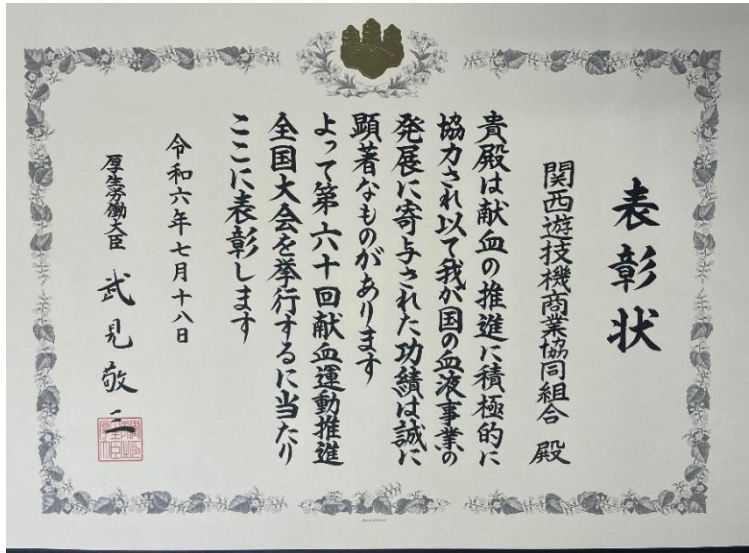 表彰状
関西遊技機商業協同組合 殿
貴殿は献血の推進に積極的に
協力され以て我が国の血液事業の
発展に寄与された功績は誠に
顕著なものがあります
よって第六十回献血運動推進
全国大会を挙行するに当たり
ここに表彰します
令和六年七月十八日
厚生労働大臣 武見敬三